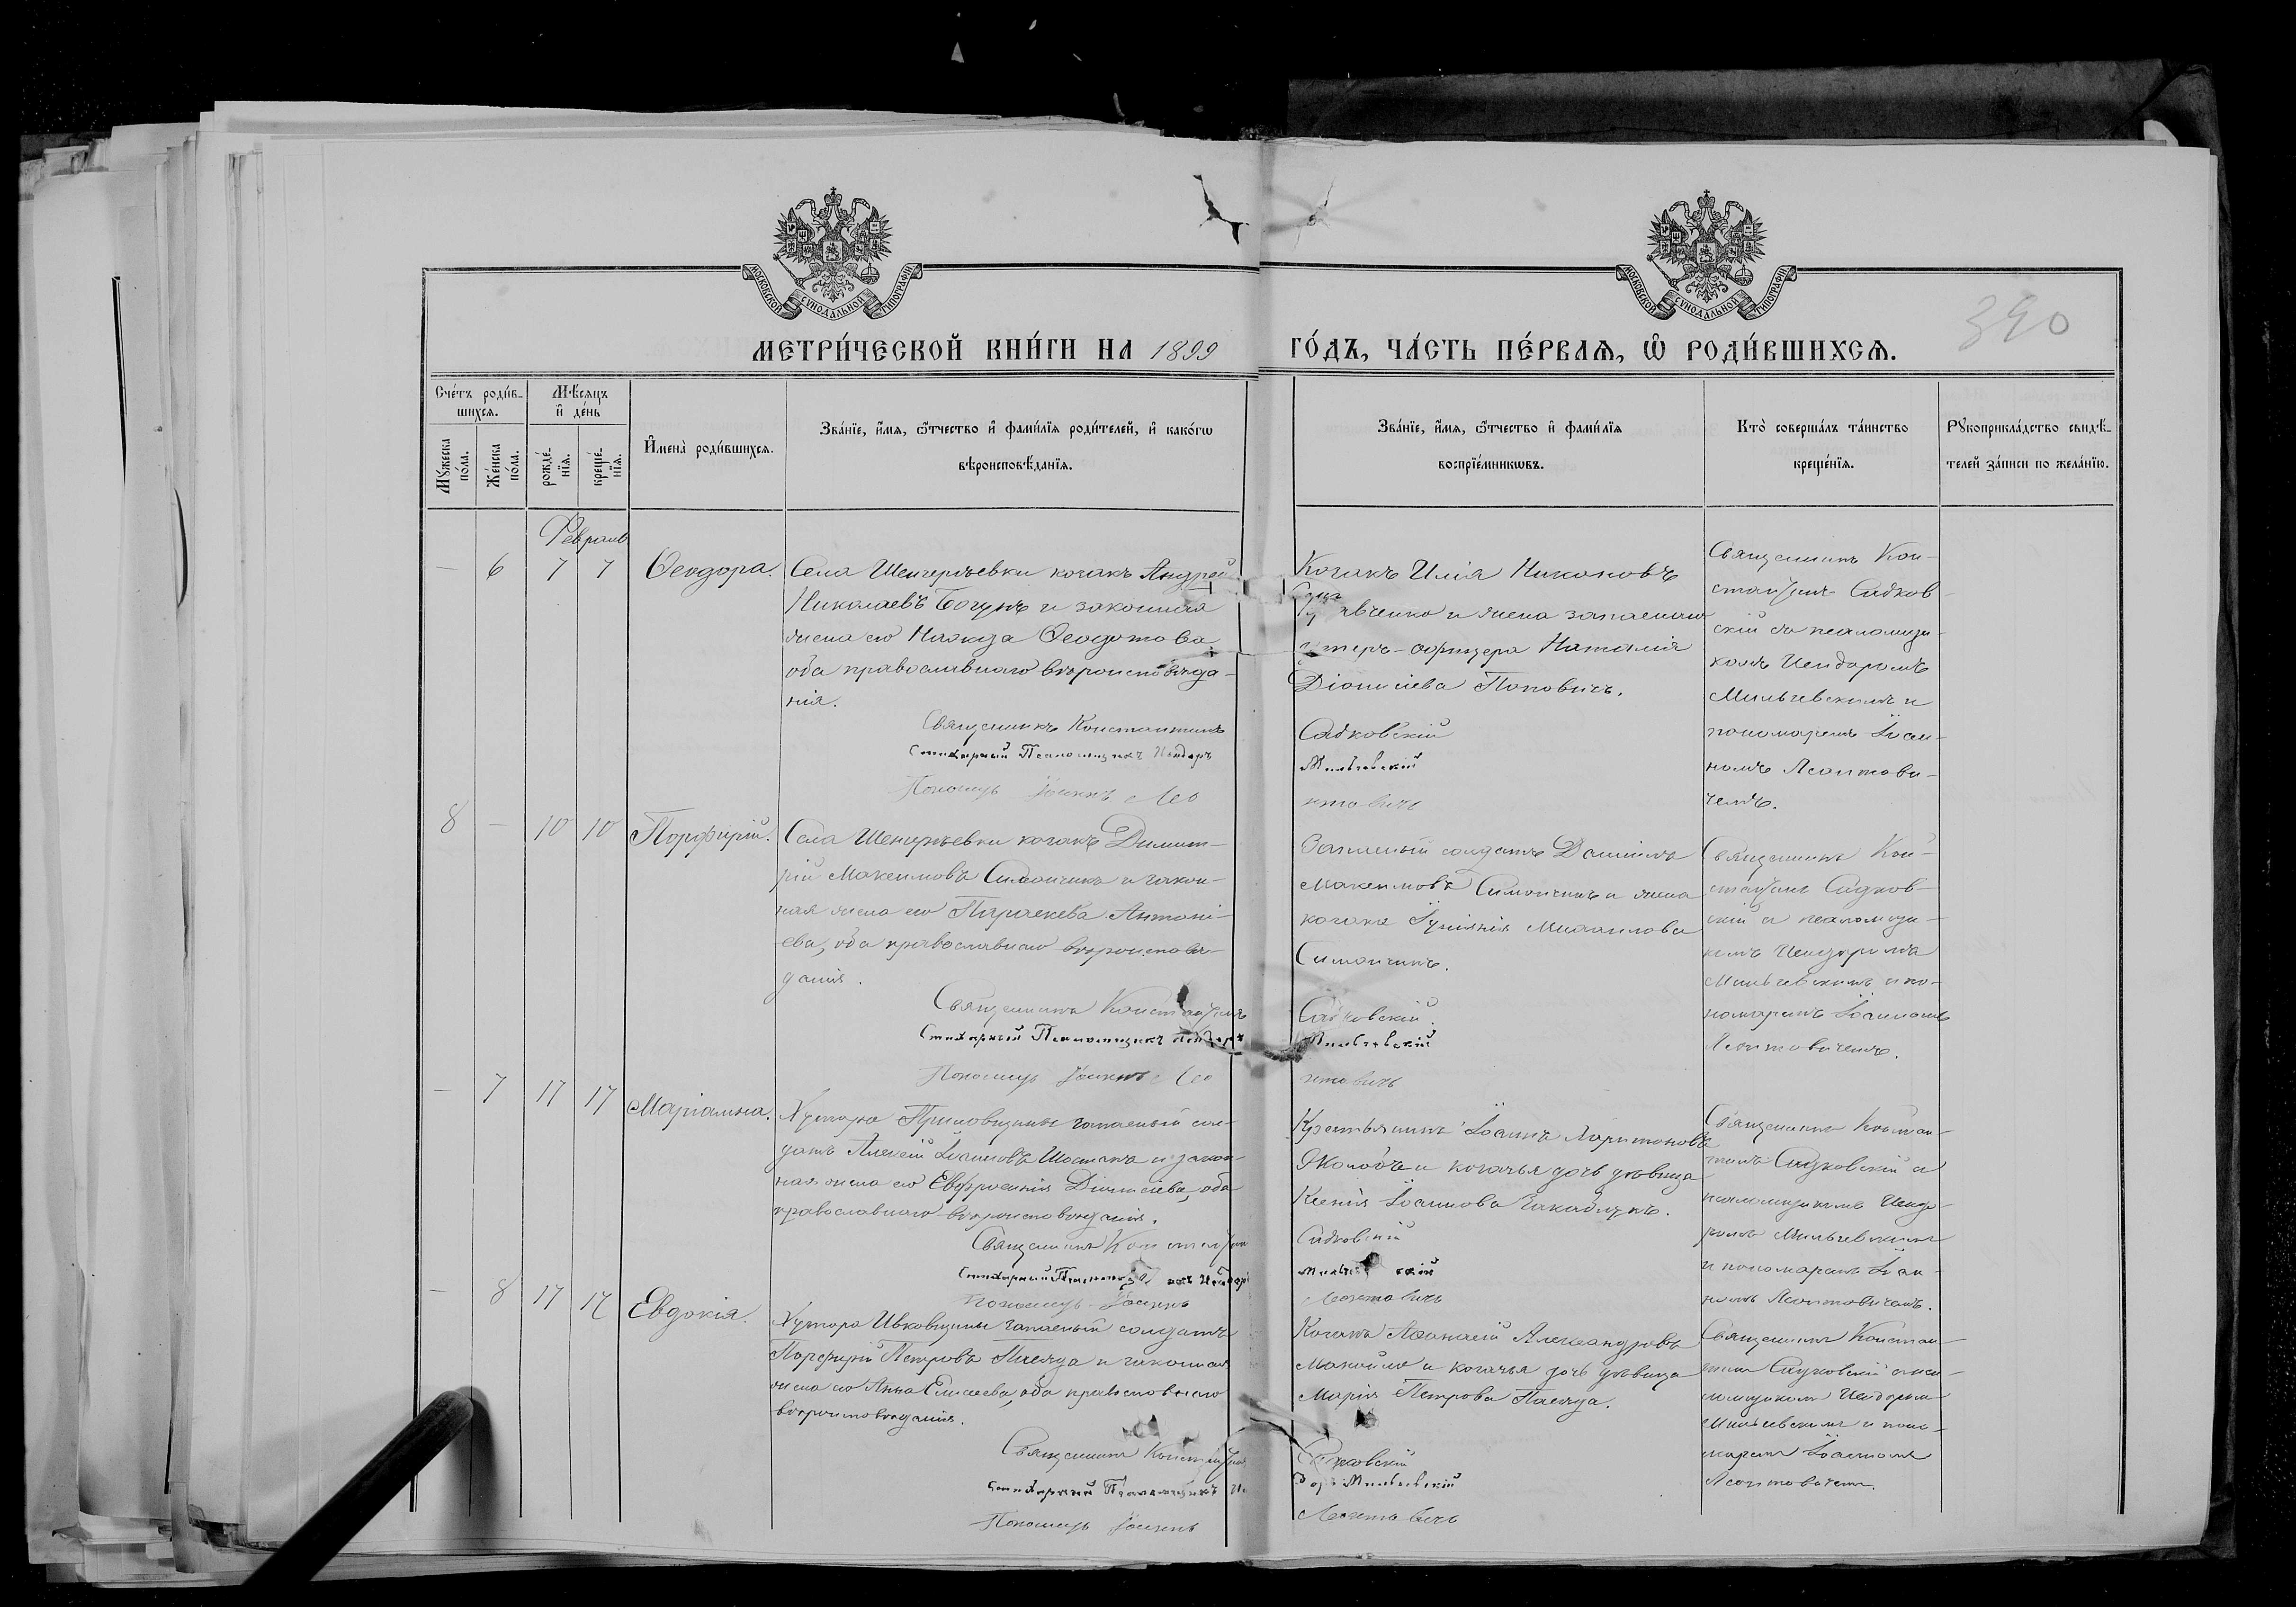 МОСКОВСКОЙ СѴНОДАЛЬНОЙ ТИПОГРАФІИ
МОСКОВСКОЙ СѴНОДАЛЬНОЙ ТИПОГРАФІИ
340
МЕТРИ́ЧЕСКОЙ КНИ́ГИ НА 1899
ГО́ДЪ, ЧА́СТЬ ПЕ́РВАѦ, Ѡ҆ РОДИ́ВШИХСѦ.
Сче́тъ роди́в-
шихсѧ.
Мѣ́сѧцъ
и҆ де́нь
Мꙋ́жеска
по́ла.
Же́нска
по́ла.
рожде́-
нїѧ.
креще́-
нїѧ.
И҆мена̀ роди́вшихсѧ.
Зва́нїе, и҆́мѧ, ѻ҆́тчество и҆ фами́лїѧ роди́телей, и҆ како́гѡ
вѣроисповѣ́данїѧ.
Зва́нїе, и҆́мѧ, ѻ҆́тчество и҆ фами́лїѧ
воспрїе́мникѡвъ.
Кто̀ соверша́лъ та́инство
креще́нїѧ.
Рꙋкоприкла́дство свидѣ́-
телей за́писи по жела́нїю.
Февраль
— 6 7 7 Ѳеодора.
Села Шенгерѣевки козакъ Андрей
Николаевъ Богунъ и законная
жена его Ѳеодотова
оба православнаго вѣроисповѣда-
нія.
Священникъ Константинъ
Стихарный Псаломщикъ Исидоръ
Пономарь Іоаннъ Лео
Козакъ Илія Никоновъ
вченко и жена запаснаго
унтеръ-офицера Наталія
Діонисіева Поповичъ.
Садковскій
Мильчевскій
нтовичъ
Священникъ Кон-
стантинъ Садков-
скій съ псаломщи-
комъ Исидоромъ
Мильчевскимъ и
пономаремъ Іоан-
номъ Леонтови-
чемъ.
8 — 10 10 Порфирій.
Села Шенгерѣевки козакъ Димит-
рій Максимовъ Симончикъ и закон-
ная жена его Параскева Антоні-
ева, оба православнаго вѣроисповѣ-
данія.
Священникъ Константинъ
Стихарный Псаломщикъ Исидоръ
Пономарь Іоаннъ Лео
Запасный солдатъ Даніилъ
Максимовъ Симончикъ и жена
козака Іуліанія Михаилова
Симончикъ.
Садковскій
Мильчевскій
нтовичъ
Священникъ Кон-
стантинъ Садков-
скій и псаломщи-
комъ Исидоромъ
Мильчевскимъ и по-
номаремъ Іоанномъ
Леонтовичемъ.
— 7 17 17 Маріамна.
Хутора запасный сол-
датъ Алексій Іоанновъ Шостакъ и закон-
ная жена его Евфросинія Діонисіева, оба
православнаго вѣроисповѣданія.
Священникъ Константинъ
Стихарный Псаломщикъ Исидоръ
Пономарь Іоаннъ
Крестьянинъ Іоаннъ Харитоновъ
и козачья дочь дѣвица
Ксенія Іоаннова
Садковскій
Мильчевскій
Леонтовичъ
Священникъ Констан-
тинъ Садковскій и
псаломщикомъ Исидо-
ромъ Мильчевскимъ
и пономаремъ Іоан-
номъ Леонтовичемъ.
— 8 17 17 Евдокія.
Хутора Ивковщины запасный солдатъ
Порфирій Петровъ и законная
жена его Анна Елисеева, оба православнаго
вѣроисповѣданія.
Священникъ Константинъ
Стихарный Псаломщикъ Иси
Пономарь Іоаннъ
Козакъ Аѳанасій Александровъ
Манойло и козачья дочь дѣвица
Марія Петрова
Садковскій
доръ Мильчевскій
Леонтовичъ
Священникъ Констан-
тинъ Садковскій и пса-
ломщикомъ Исидоромъ
Мильчевскимъ и поно-
маремъ Іоанномъ
Леонтовичемъ.